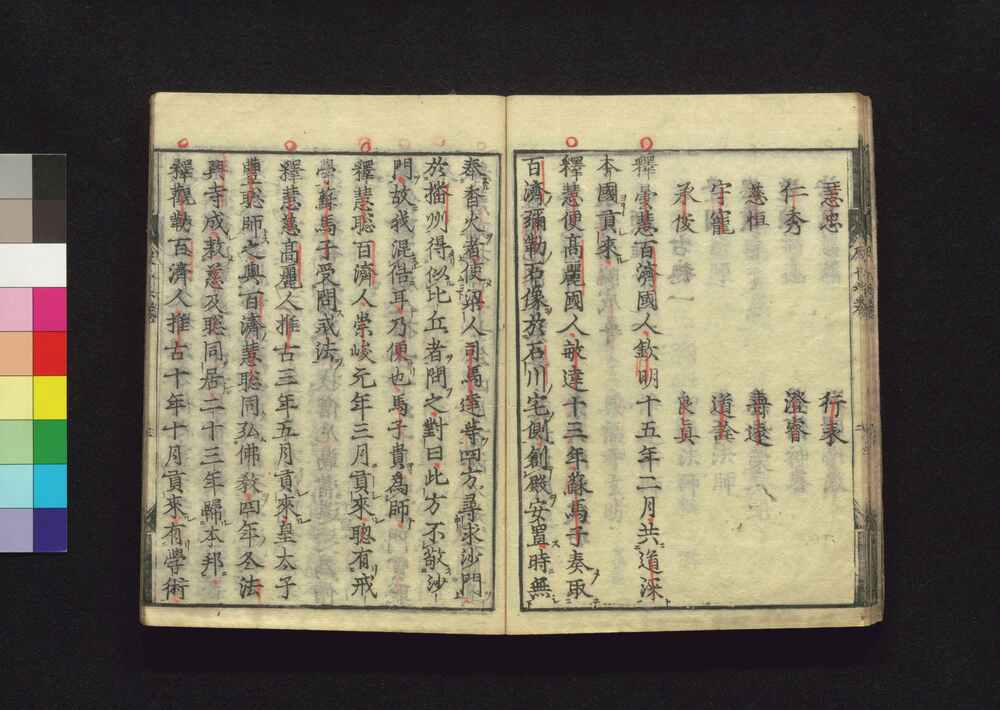 慧忠　行表
仁秀　澄睿
慈恒　壽遠
守寵　道詮
承俊　良真
釋曇慧百濟國人欽明十五年二月共道深
夲國貢來
釋慧便高麗國人敏達十三年蘇馬子奏取
百濟彌勒石像於石川宅側創殿安置時無
奉香火者使人司馬達等四方尋求沙門
於播州得似比丘者問之對曰此方不敬沙
門故我混俗耳乃便也馬子貴爲師
釋慧聰百濟人崇峻元年三月貢來聰有戒
學蘇馬子受問戒法
釋慧慈高麗人推古三年五月貢來皇太子
豐聰師之與百濟慧聰同弘佛敎四年冬法
興寺成敕慈及聰同居二十三年歸本邦
釋觀勒百濟人推古十年十月貢來有學術